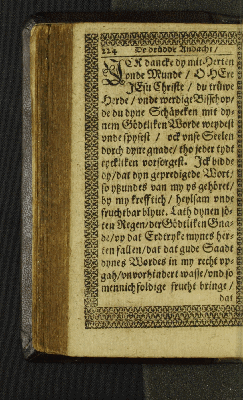 224 De drüdde Andacht /
JCk dancke dy mit Herten
vnde Munde / O HEre
JEsu Christe / du trüwe
Herde / vnde werdige Bisschop /
de du dyne Schäpeken mit dy-
nem Gödtliken Worde weydest
vnde spysest / ock vnse Seelen
dorch dyne gnade / tho jeder tydt
ryckliken vorsorgest. Jck bidde
dy / dat dyn gepredigede Wort /
so ytzundes van my ys gehöret /
by my krefftich / heylsam vnde
fruchtbar blyue. Lath dynen sö-
ten Regen / der Gödtliken Gna-
de / vp dat Erdtryke mynes her-
ten fallen / dat dat gude Saadt
dynes Wordes in my recht vp-
gah / vnvorhindert wasse / vnd so
mennichfoldige frucht bringe /
dat